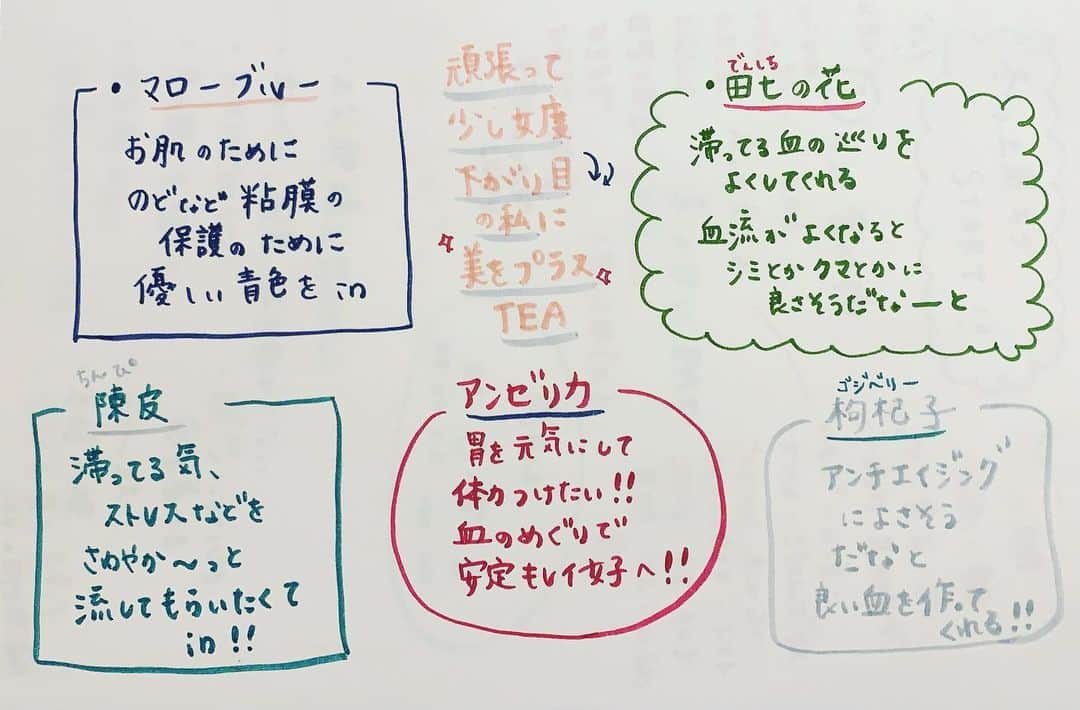 頑張って
少し女度
下がり目
の私に
美をプラス
TEA
・マローブルー
お肌のために
のどなど粘膜の
保護のために
優しい青色をin
でんしち
・田七の花
滞ってる血の巡りを
よくしてくれる
血流がよくなると
シミとかクマとかに
良さそうだなーと
ちんぴ
陳皮
滞ってる気、
ストレスなどを
さわやか〜っと
流してもらいたくて
in!!
アンゼリカ
胃を元気にして
体力つけたい!!
血のめぐりで
安定もしイ女子へ!!
ゴジベリー
枸杞子
アンチエイジング
によさそう
だなと
良い血を作って
くれる!!